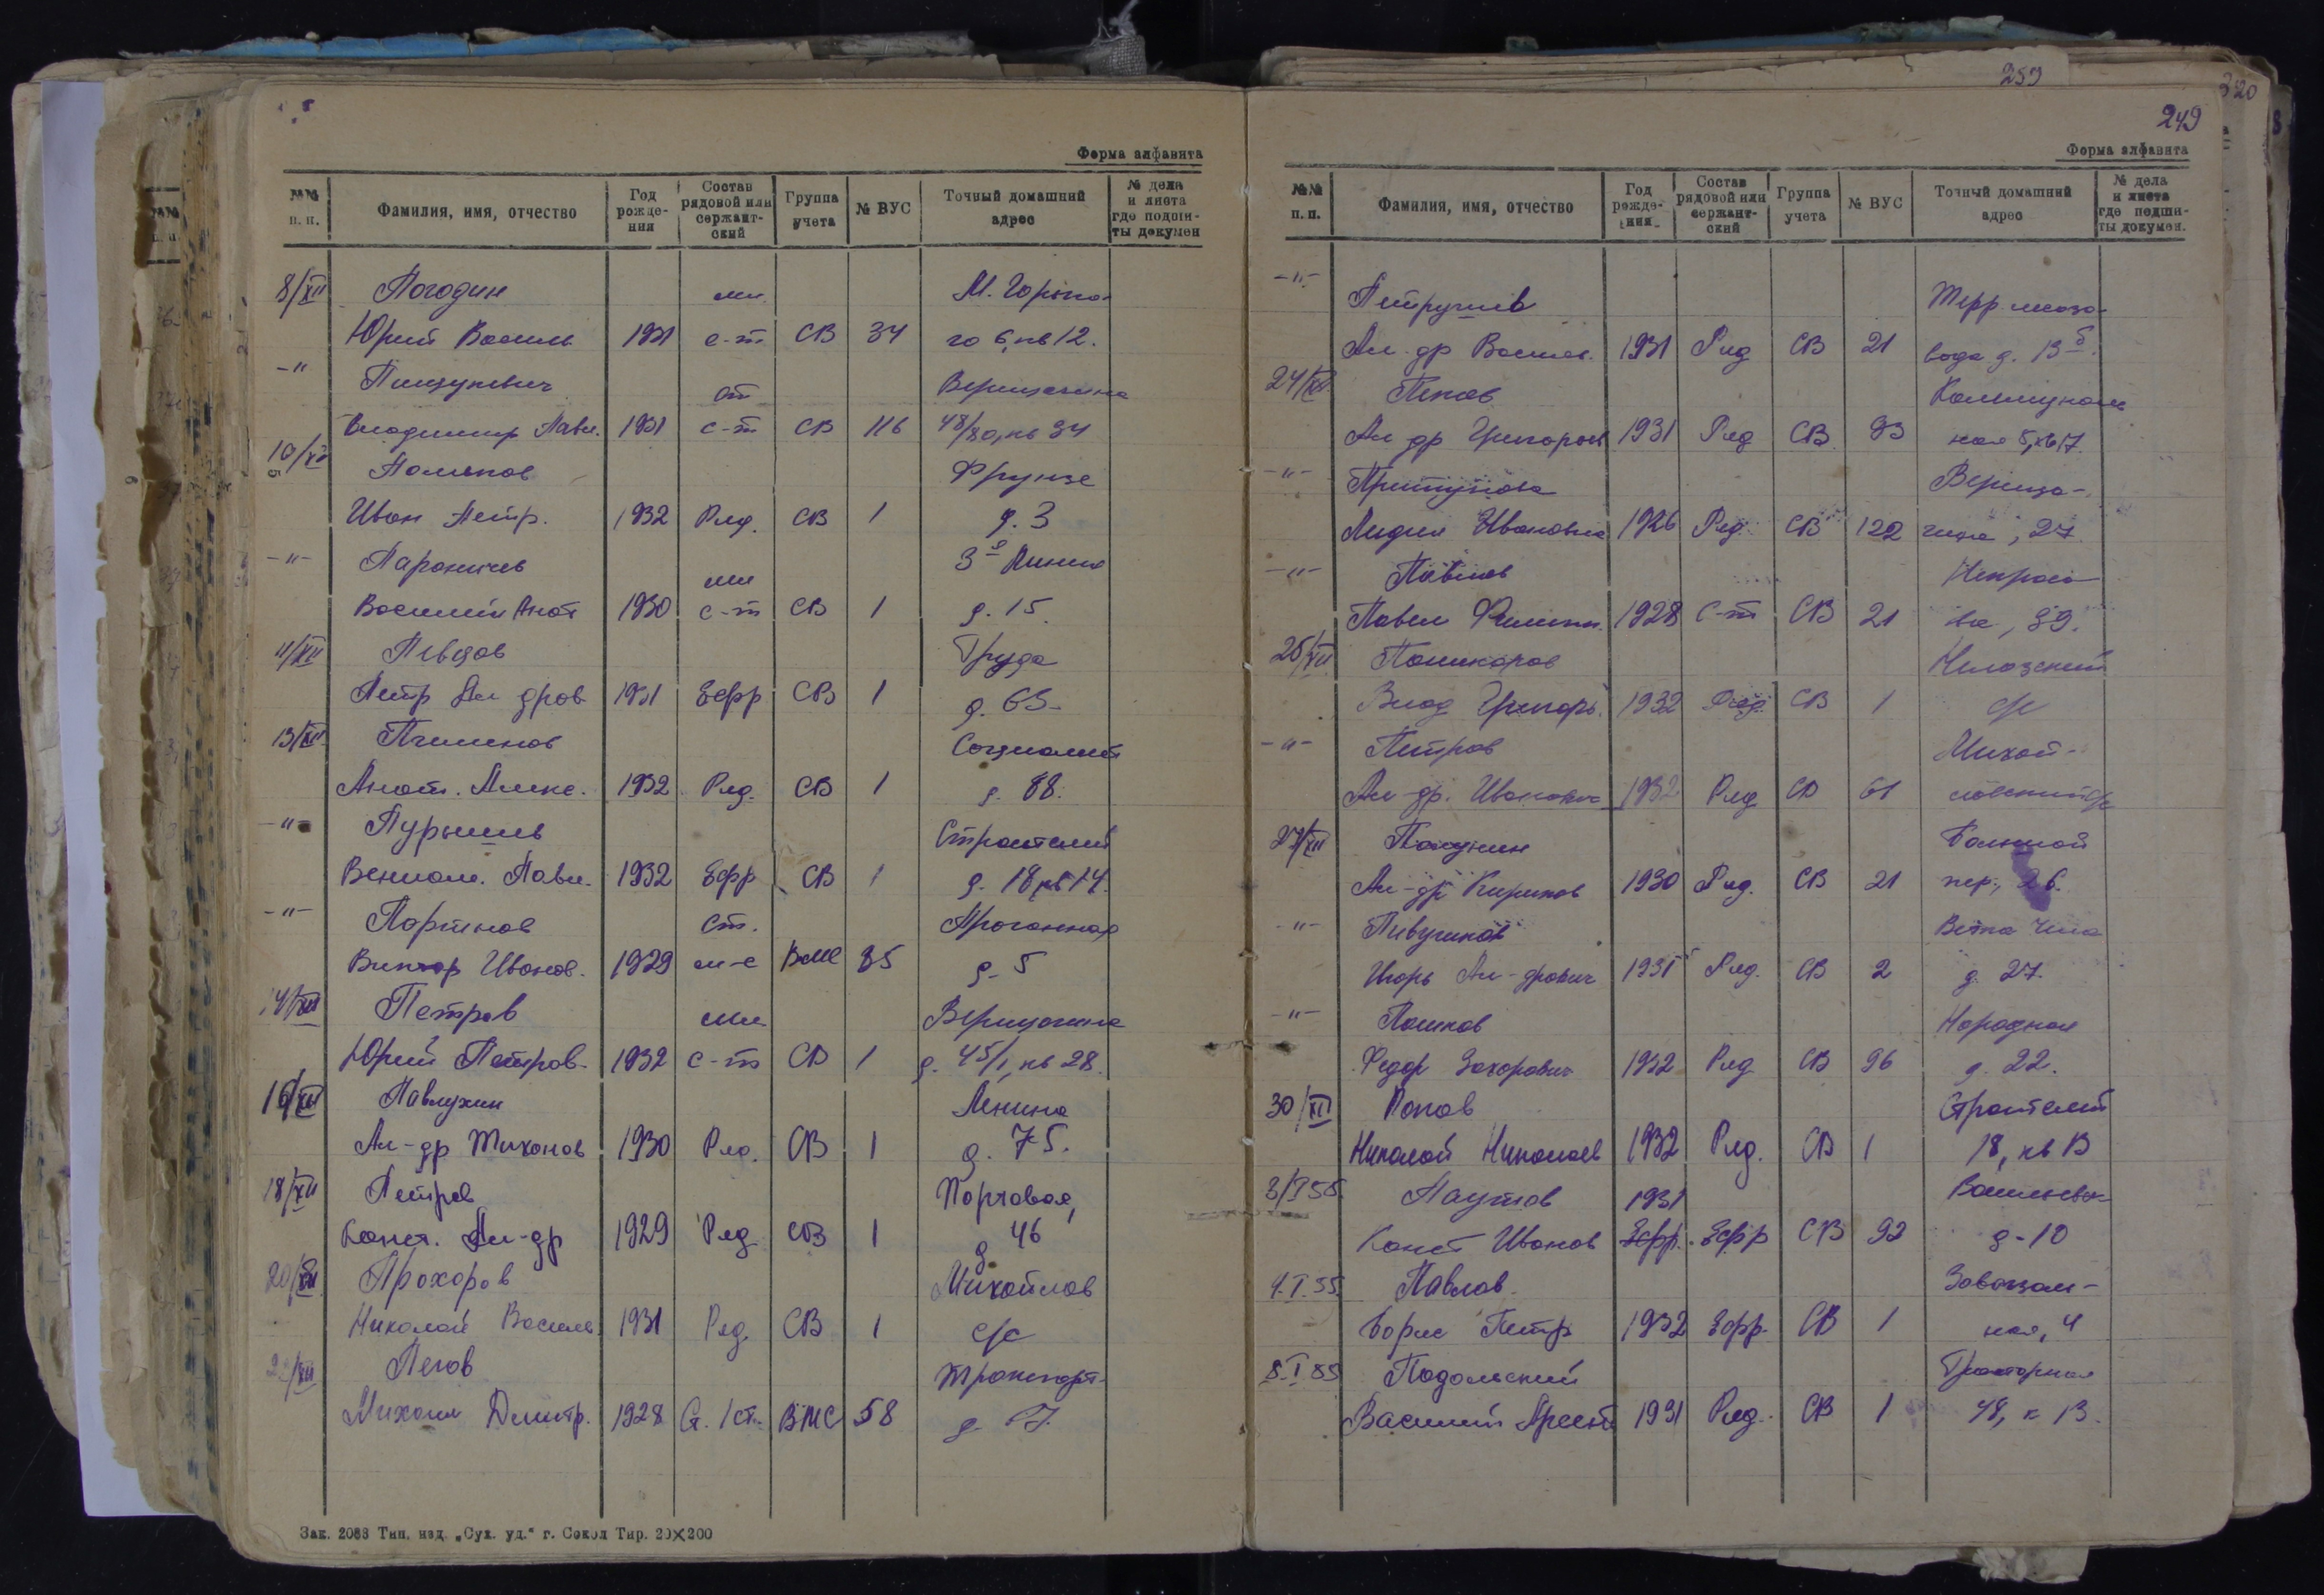 Форма алфавита
№№ п. п.
Фамилия, имя, отчество
Год рождения
Состав рядовой или сержантский
Группа учета
№ ВУС
Точный домашний адрес
№ дела и листа где подшиты докумен
8/XII Погодин мл. М. Горько-
Юрий Василь 1931 с-т СВ 34 го 6, кв 12.
-"- ст Верещагина
Владимир Павл. 1931 с-т СВ 116 48/80, кв 34
10/XII Поляков Фрунзе
Иван Петр. 1932 Ряд. СВ 1 д. 3
-"- Пароничев мл 3я Линия
Василий Анат 1930 с-т СВ 1 д. 15.
11/XII Певцов Труда
Петр Ал дров 1931 Ефр СВ 1 д. 63
13/XII Пчелинов Социалист
Анат. Алекс. 1932 Ряд. СВ 1 д. 88.
-"- Пурышев Строителей
Вениам. Павл. 1932 Ефр СВ 1 д. 18, кв 14.
-"- Портнов ст. Прогонная
Виктор Иванов. 1929 м-с ВМС 85 д- 5
14/XII Петров мл Верещагина
Юрий Петров. 1932 с-т СВ 1 д. 45/1, кв 28.
16/XII Павлухин Ленина
Ал-др Тихонов 1930 Ряд. СВ 1 д. 75.
18/XII Петров Портовая,
Конст. Ал-др 1929 Ряд. СВ 1 д 46
20/XII Прохоров Михайлов
Николай Василь 1931 Ряд. СВ 1 с/с
Пегов Транспорт-
Михаил Дмитр. 1928 Ст. 1 ст. ВМС 58 д.
Зак. 2088 Тип. изд. „Сух. уд." г. Сокол Тир. 20×200
259
320
249
Форма алфавита
№№ п. п.
Фамилия, имя, отчество
Год рождения
Состав рядовой или сержантский
Группа учета
№ ВУС
Точный домашний адрес
№ дела и листа где подшиты докумен.
-"- Петрушев Терр мясо-
Ал-др Васильев. 1931 Ряд СВ 21 вода д. 13 б.
24/XII Пеков Коммуналь
Ал др Григорьев 1931 Ряд СВ 93 ная 5, кв 17.
-"- Притупова Вереща-
Лидия Ивановна 1926 Ряд. СВ 122 гина, 27.
-"- Некрасо-
Павел Филипп. 1928 С-т СВ 21 ва, 89.
25/XII Поникаров Нелазский
Влад Григорь. 1932 Ряд. СВ 1 с/с
-"- Петров Михай-
Ал-др. Иванович 1932 Ряд СВ 61 ловский с/с
27/XII Пакунин Большой
Ал-др Кириков 1930 Ряд. СВ 21 пер., 26.
-"- Пивушков
Игорь Ал-дрович 1931 Ряд. СВ 2 д. 27.
-"- Пашков Народная
Федор Захарович 1932 Ряд СВ 96 д. 22.
30/XII Попов Строителей
Николай Николаев 1932 Ряд. СВ 1 18, кв 13
3/I 55. Паутов 1931
Конст Иванов Ефр. Ефр СВ 92 д-10
4.I.55. Павлов. Завокзаль-
Борис Петр 1932 Ефр. СВ 1 ная, 4
8.I 55 Подольский Тракторная
Василий Арсент 1931 Ряд. СВ 1 48, к 13.